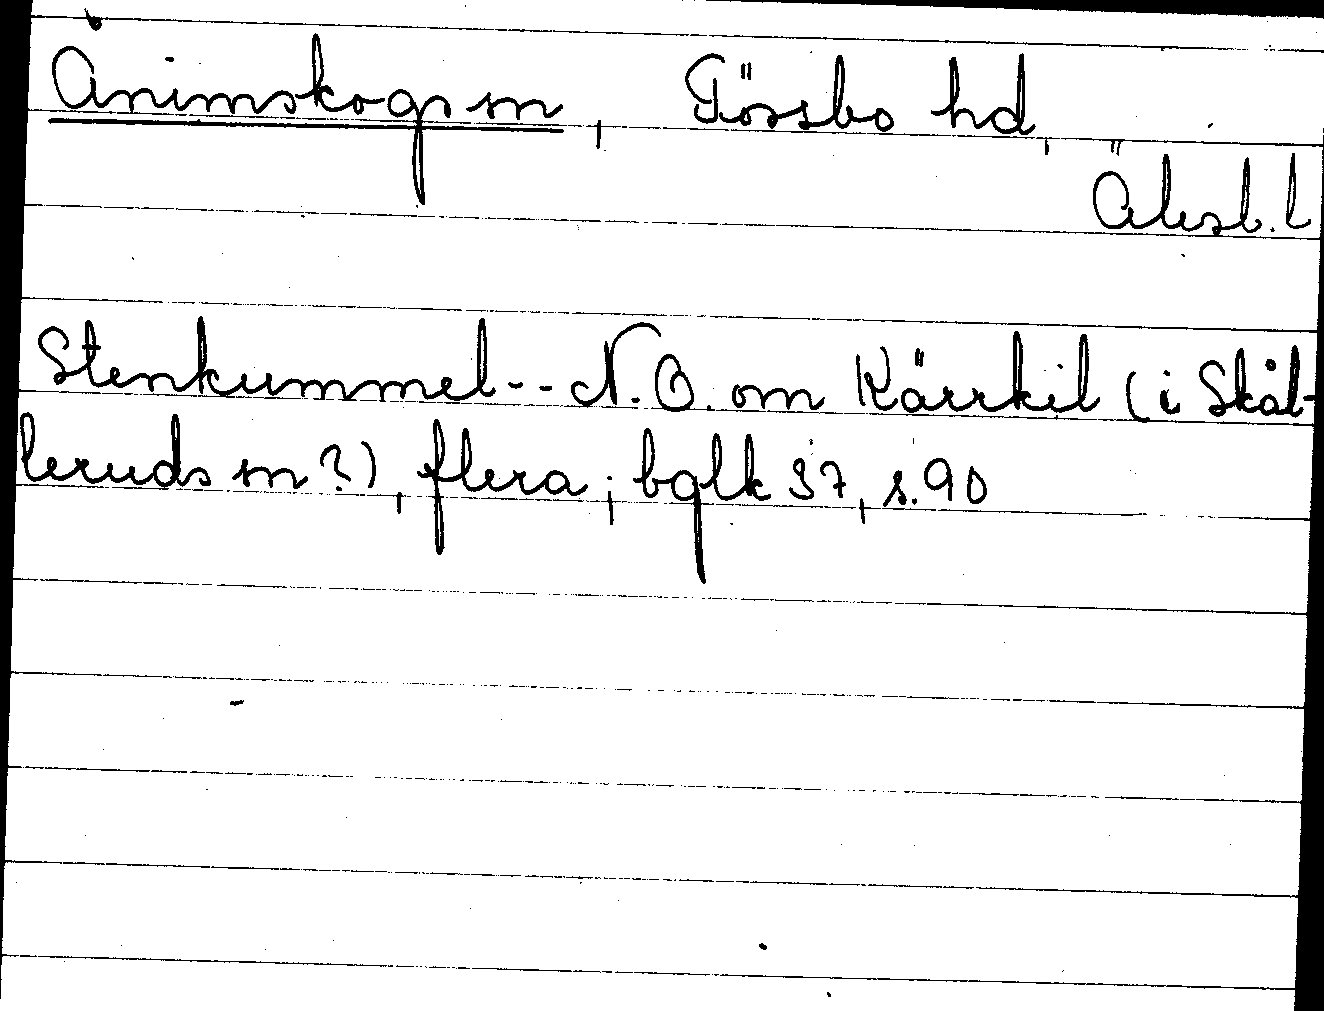 Ånimskogs sn, Tössbo hd,
Älvsb. l
Stenkummel -- N.O. om Kärrkil (i Skål-
leruds sn?), flera; bglk 37, s. 90